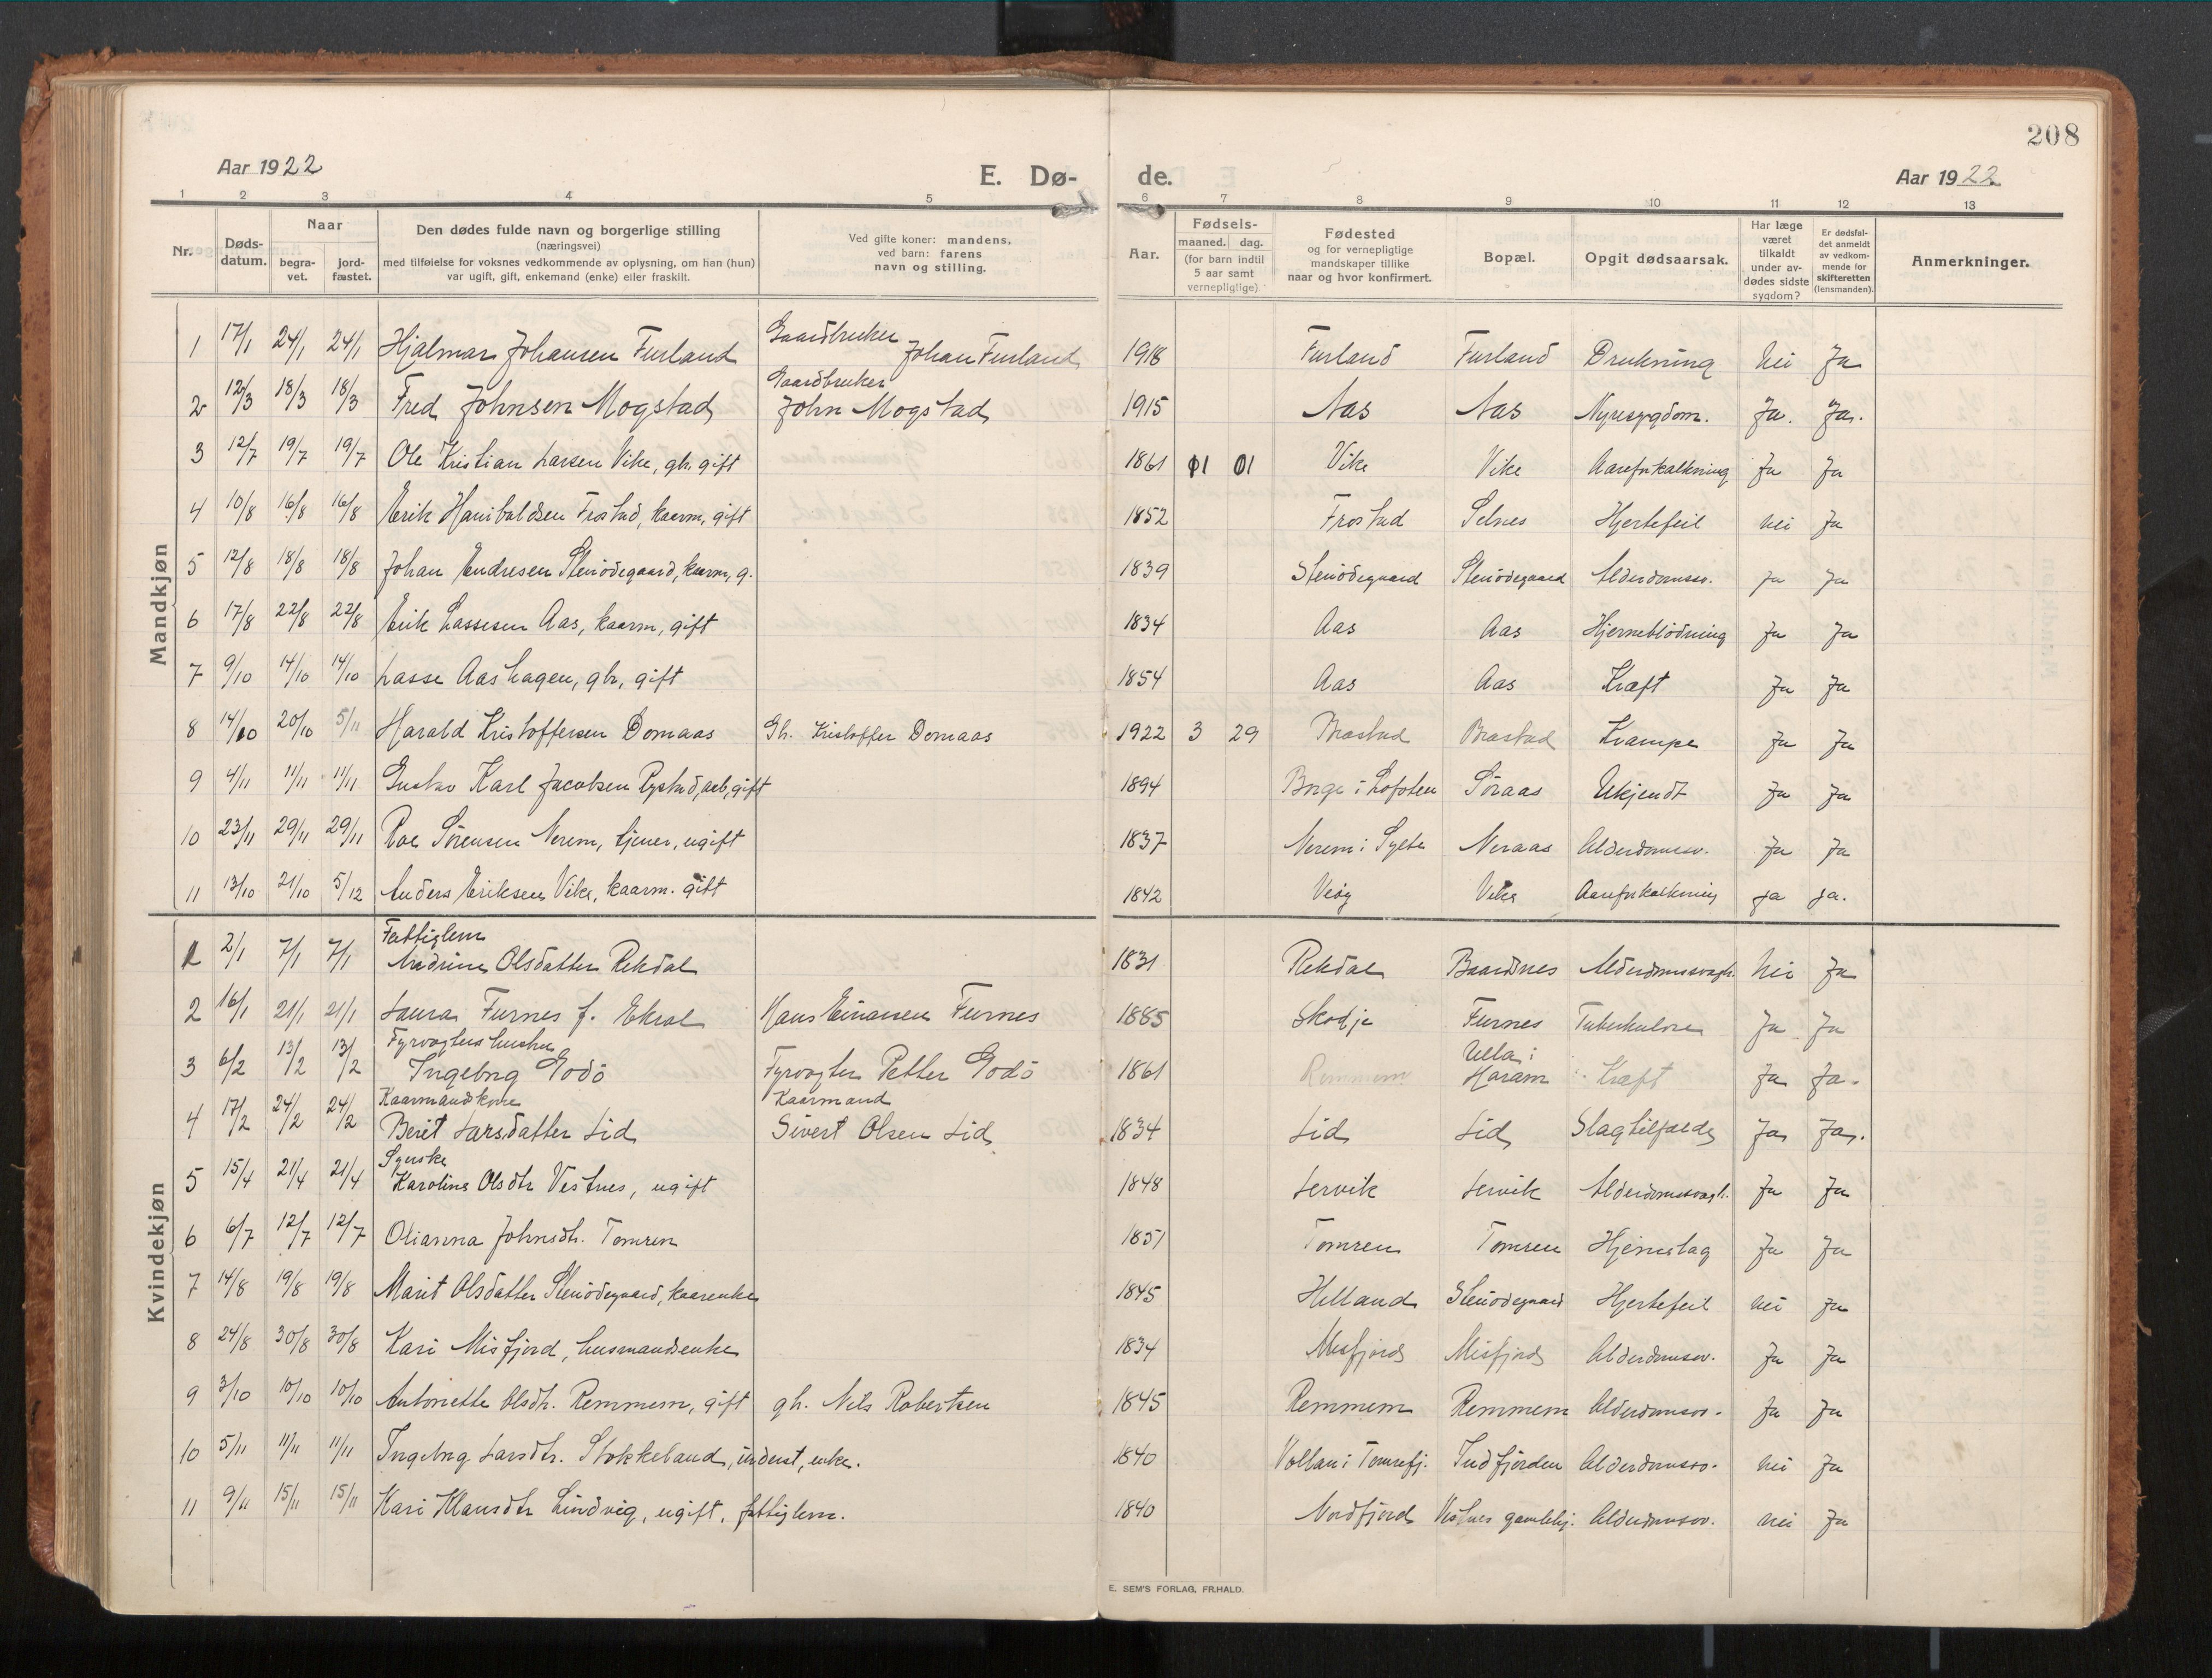 208
Aar 1922
E. Dø-
de.
Aar 1922
1 2 3 4 5 6 7 8 9 10 11 12 13
Nr.
Døds-
datum.
Naar
begra-
vet.
jord-
fæstet.
Den dødes fulde navn og borgerlige stilling
(næringsvei)
med tilføielse for voksnes vedkommende av oplysning, om han (hun)
var ugift, gift, enkemand (enke) eller fraskilt.
Ved gifte koner: mandens,
ved barn: farens
navn og stilling.
Aar.
Fødsels-
maaned. dag.
(for barn indtil
5 aar samt
vernepligtige)
Fødested
og for vernepligtige
mandskaper tillike
naar og hvor konfirmert.
Bopæl.
Opgit dødsaarsak.
Har læge
været
tilkaldt
under av-
dødes sidste
sygdom?
Er dødsfal-
det anmeldt
av vedkom-
mende for
skifteretten
(lensmanden).
Anmerkninger.
Mandkjøn
Gaardbruker
1 17/1 24/1 24/1 Hjalmar Johansen Furland Johan Furland 1918 Furland Furland Drukning Nei Ja
Gaardbruker
2 12/3 18/3 18/3 Fred Johnsen Mogstad John Mogstad 1915 Aas Aas Nyresygdom. Ja. Ja.
3 12/7 19/7 19/7 Ole Kristian Larsen Vike, gbr. gift 1861 01 01 Vike Vike Aareforkalkning Ja Ja
4 10/8 16/8 16/8 Erik Hanibaldsen Frostad, kaarm, gift 1852 Frostad Selnes Hjertefeil nei Ja
5 12/8 18/8 18/8 Johan Endresen Stenødegaard, kaarm, g. 1839 Stenødegaard Stenødegaard Alderdomssv. Ja Ja
6 17/8 22/8 22/8 Erik Lassesen Aas, kaarm, gift 1834 Aas Aas Hjerneblødning Ja Ja
7 9/10 14/10 14/10 Lasse Aashagen, gbr, gift 1854 Aas Aas Kræft Ja Ja
8 14/10 20/10 5/11 Harald Kristoffersen Domaas Gb. Kristoffer Domaas 1922 3 29 Brastad Brastad Krampe Ja Ja
9 4/11 11/11 11/11 Gustav Karl Jacobsen Rystad, arb, gift 1894 Borge i Lofoten Søraas Ukjendt Ja Ja
10 23/11 29/11 29/11 Roe Sørensen Nerem, tjener, ugift 1837 Nerem i Sylte Neraas Alderdomssv. Ja Ja
11 13/10 21/10 5/12 Anders Eriksen Vike, kaarm. gift 1842 Veøy Vike Aareforkalkning ja ja.
Kvindekjøn
Fattiglem
1 2/1 7/1 7/1 Olsdatter Rekdal 1831 Rekdal Baardsnes Alderdomssvagh. Nei Ja
2 16/1 21/1 21/1 Laura Furnes f. Ekrol Hans Einarsen Furnes 1885 Skodje Furnes Tuberkulose Ja Ja
Fyrvogters hustru Ulla i
3 6/2 13/2 13/2 Ingebrg Godø Fyrvogter Petter Godø 1861 Remmem Haram Kræft Ja Ja.
Kaarmandskone Kaarmand
4 17/2 24/2 24/2 Berit Larsdatter Lid Sivert Olsen Lid 1834 Lid Lid Slagtilfælde Ja Ja.
Syerske
5 15/4 21/4 21/4 Karoline Olsdtr Vestnes, ugift 1848 Lervik Lervik Alderdomssvagh. Ja Ja
6 6/7 12/7 12/7 Olianna Johnsdtr. Tomren 1851 Tomren Tomren Hjerneslag Ja Ja
7 14/8 19/8 19/8 Marit Olsdatter Stenødegaard, kaarenke 1845 Helland Stenødegaard Hjertefeil nei Ja
8 24/8 30/8 30/8 Kari Misfjord, husmandsenke 1834 Misfjord Misfjord Alderdomssv. Ja Ja
9 3/10 10/10 10/10 Antonette Olsdtr. Remmem, gift gb. Nils Robertsen 1845 Remmem Remmem Alderdomssv. Ja Ja
10 5/11 11/11 11/11 Ingebrg Larsdtr. Stokkeland, inderst, enke. 1840 Vollan i Tomrefj. Tudfjorden Alderdomssv. Nei Ja
11 9/11 15/11 15/11 Kari Klausdtr Lindvig, ugift, fattiglem. 1840 Nordfjord Vestnes gamlehj. Alderdomssv. Nei Ja
E. SEM'S FORLAG, FR.HALD.